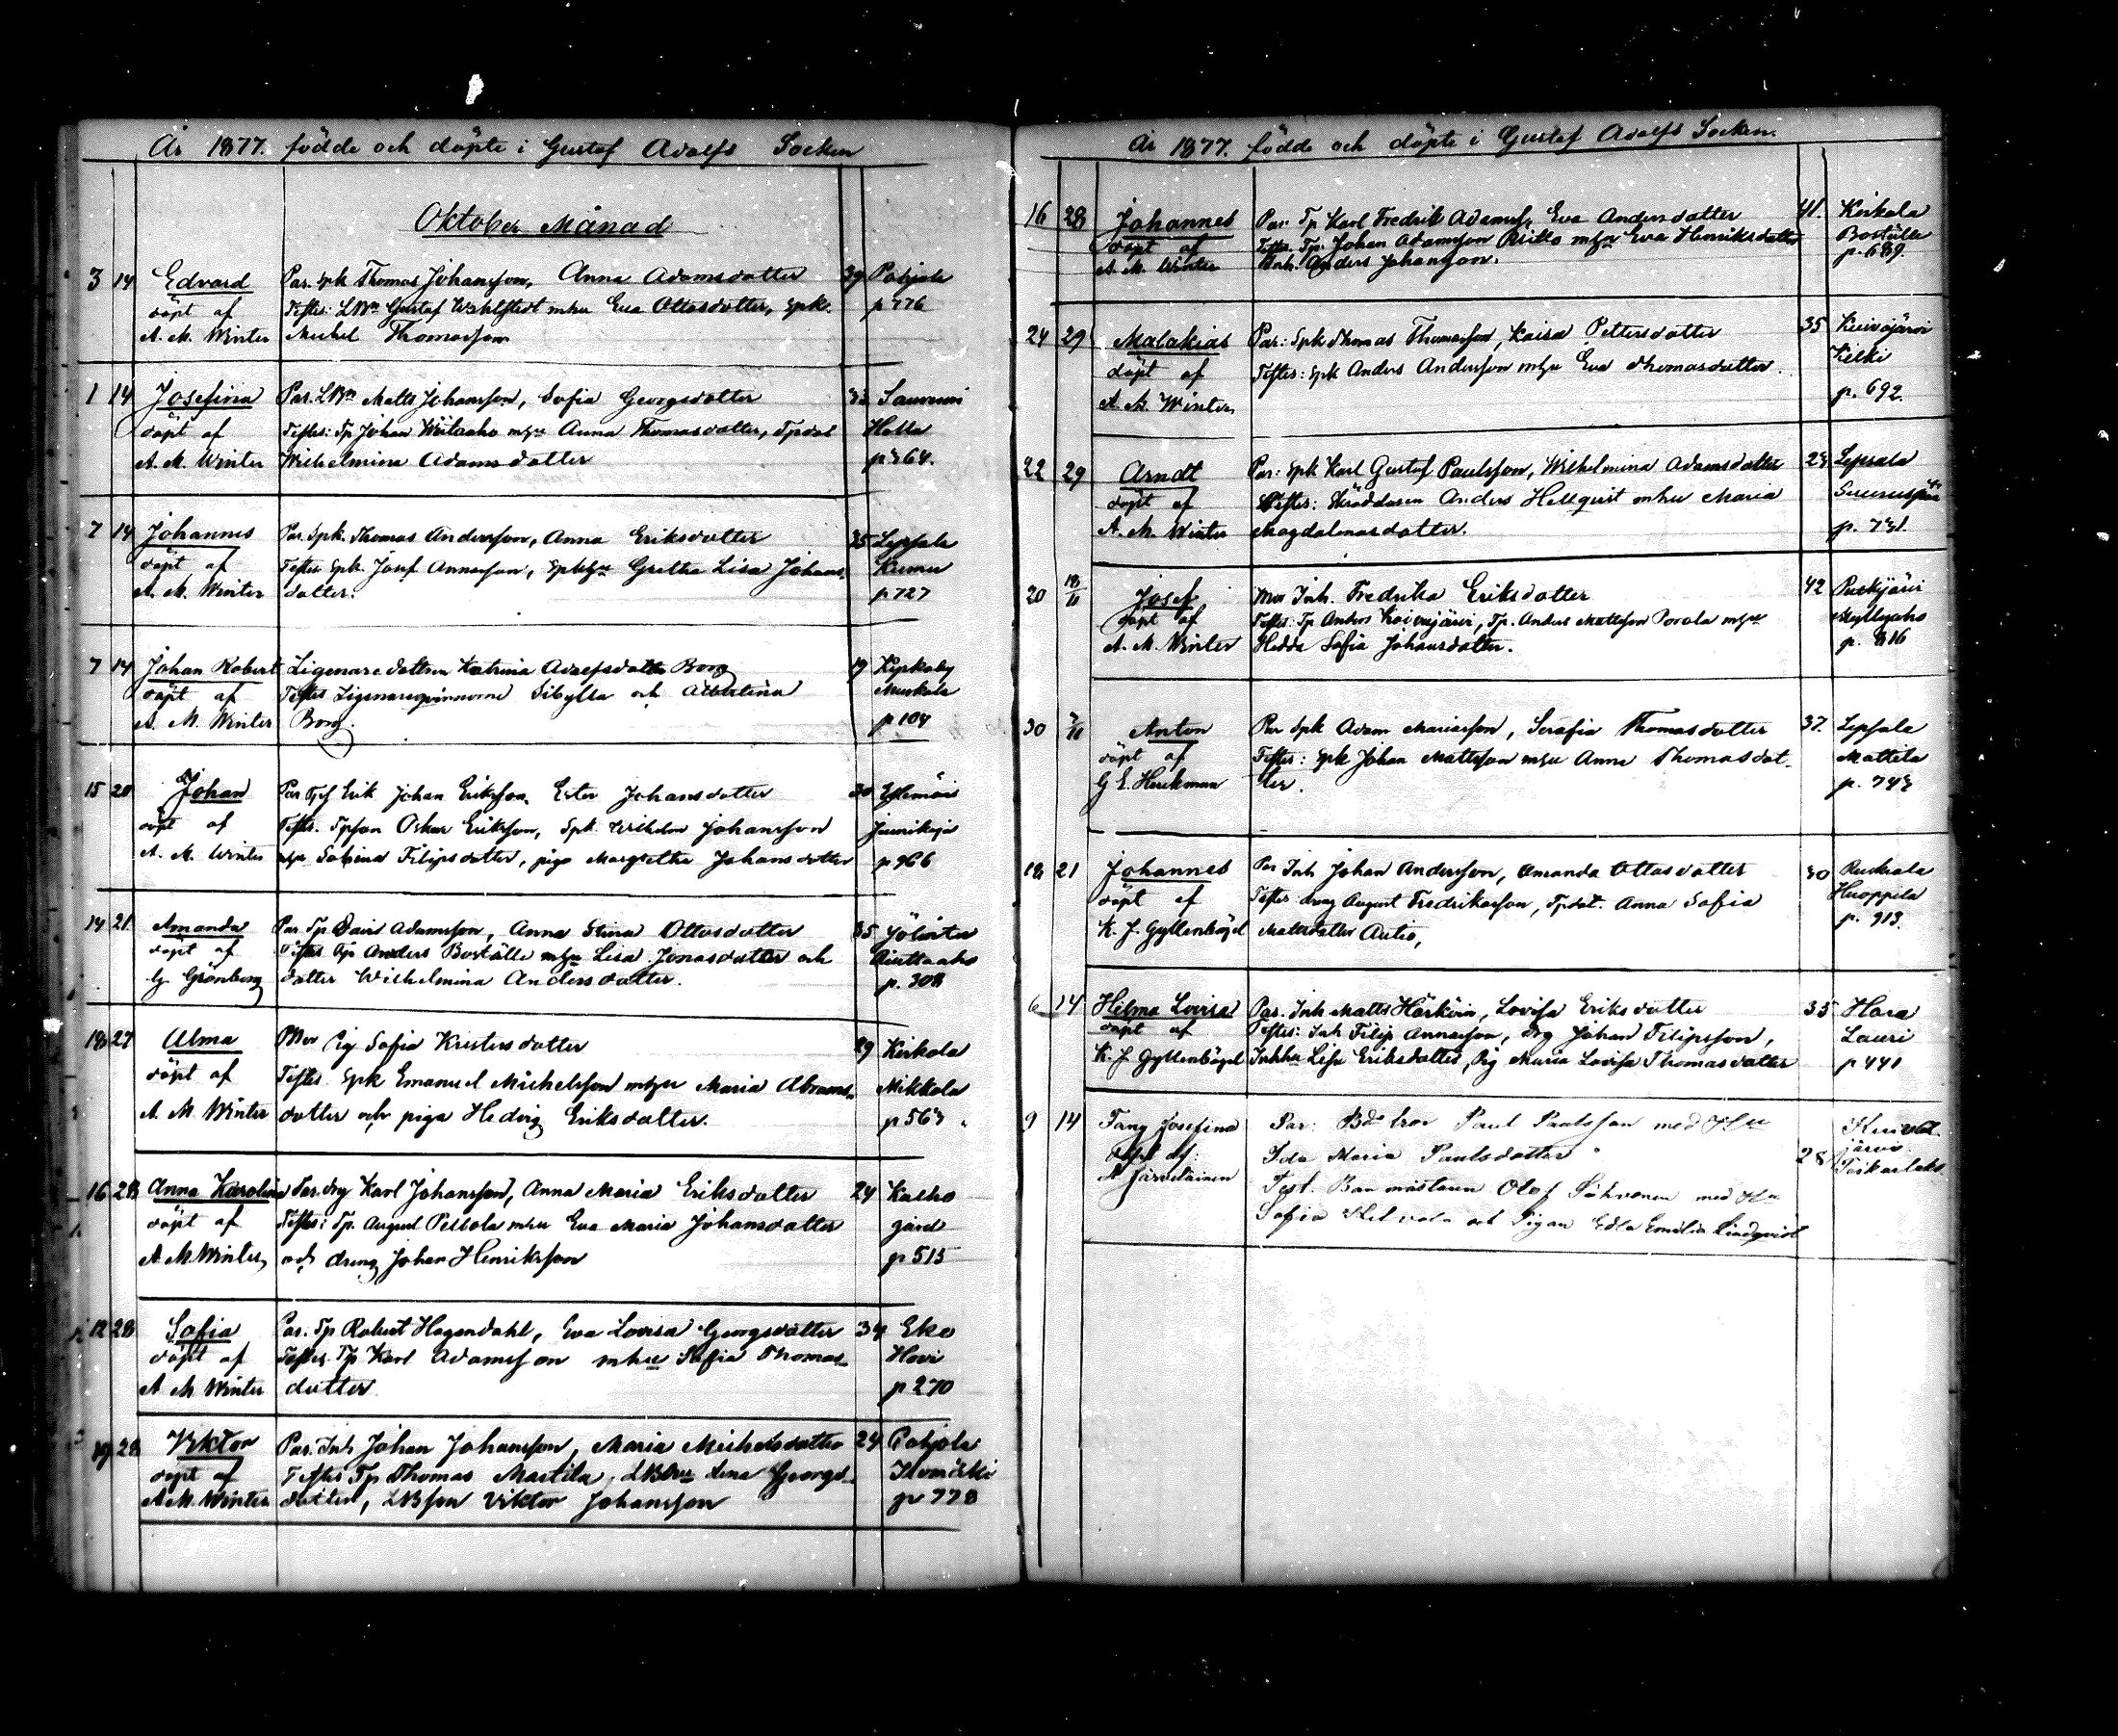 År 1877. födde och döpte i Gustaf Adolfs Socken
Oktober Månad
3 14 Edvard Par. Spk Thomas Johansson, Anna Adamsdotter 39 Pohjola
döpt af Testes: LBn Gustaf Wahlstedt mhu Eva Ottosdotter, Spk. p 776
A. M. Winter Michel Thomasson
1 14 Josefina Par. LBn Matts Johansson, Sofia Georgsdotter 33
döpt af Testes: Tp Johan Wiitaaho mhu Anna Thomasdotter, Tpdot Halla
A. M. Winter Wilhelmina Adamsdotter p 364.
7 14 Johannes Par. Spk. Thomas Andersson, Anna Eriksdotter 35 Lepsala
döpt af Testes Spk Josef Annasson, Spkhu Gretha Lisa Johans- Kumu
A. M. Winter dotter. p 727
7 14 Johan Robert Ligenaredottren Katrina Adolfsdotter Borg 19 Kirkoby
döpt af Testes Ligenareqvinnorne Sibylla och Albertina Muskala
A. M. Winter Borg. p 104
15 20 Johan Par Erik Johan Eriksson, Ester Johansdotter 30
döpt af Testes. Tpson Oskar Eriksson, Spk Wilhelm Johansson
A. M. Winter mhu Sabina Filipsdotter, piga Margretha Johansdotter p 966
14 21 Amanda Par Tp David Adamsson, Anna Stina Ottosdotter 35
döpt af Testes Tp Anders Boställe mhu Lisa Jonasdotter och
G. Grönberg dotter Wilhelmina Andersdotter. p. 308
18 27 Alma Mor Pig Sofia Kristersdotter 29 Kirkola
döpt af Testes Spk Emanuel Michelsson mhu Maria Abrams- Mikkola
A. M Winter dotter och piga Hedvig Eriksdotter. p 563
16 28 Anna Karolina Par. drg Karl Johansson, Anna Maria Eriksdotter 24 Kalho
döpt af Testes: Tp. August Pessola mhu Eva Maria Johansdotter gård
A M. Winter och dreng Johan Henriksson p 515
12 28 Sofia Par. Tp Robert Hagendahl, Eva Lovisa Georgsdotter 34 Eko
döpt af Testes Tp Karl Adamsson mhu Sofia Thomas- Hovi
A M Winter dotter p 270
19 28 Viktor Par. Inh Johan Johansson, Maria Michelsdotter 24 Pohjola
döpt af Testes Tp Thomas Mastila, LBhu Lena Georgs-
A M. Winter dotter, LBson Viktor Johansson p 778
År 1877. födde och döpte i Gustaf Adolfs Socken.
16 28 Johannes Par. Tp Karl Fredrik Adamss, Eva Andersdotter 41. Kirkola
döpt af Testes. Tp. Johan Adamsson mhu Eva Henriksdotter Boställe
A. M. Winter Inh. Anders Johansson. p. 689.
24 29 Malakias Par: Spk Thomas Thomasson, Kaisa Pettersdotter 35 Kuivajärvi
döpt af Testes: Spk Anders Andersson mhu Eva Thomasdotter. Kilki
A. M. Winter p. 692.
22 29 Arndt Par: Spk Karl Gustaf Paulsson, Wilhelmina Adamsdotter 23 Lepsala
döpt af Testes: Skräddaren Anders Hellqvist mhu Maria
A. M. Winter Magdalenasdotter. p. 731.
20 18/11 Josef Mor Inh. Fredrika Eriksdotter 42 Puskjärvi
döpt af Testes: Tp Anders Koivujärvi, Tp. Anders Mattsson Porola mhu Myllyaho
A. M. Winter Hedda Sofia Johansdotter. p. 816
30 Anton Par Spk Adam Mariasson, Serafia Thomasdotter 37. Lepsala
döpt af Testes: Spk Johan Mattsson mhu Anna Thomasdot- Mattila
G E. Heickman ter. p. 743
18 21 Johannes Par Inh Johan Andersson, Amanda Ottosdotter 30 Ruskiala
döpt af Testes dreng August Fredriksson, Tpdot. Anna Sofia Huoppila
K. J. Gyllenbögel Mattsdotter Autio, p. 913.
6 14 Hilma Lovisa Par. Inh Matts Härkön, Lovisa Eriksdotter 35 Hara
döpt af Testes: Inh Filip Annasson, drg Johan Filipsson, Lauri
K. J Gyllenbögel Inhhu Lisa Eriksdotter, Pig Maria Lovisa Thomasdotter p 441
9 14 Fanny Josefina Par: Paul Paulsson med Hu
döpt af: Ida Maria Paulsdotter 28 järvi
A Järveläinen Test. Banmästaren Olof med Hu
Sofia och Pigan Edla Emilia Lindqvist